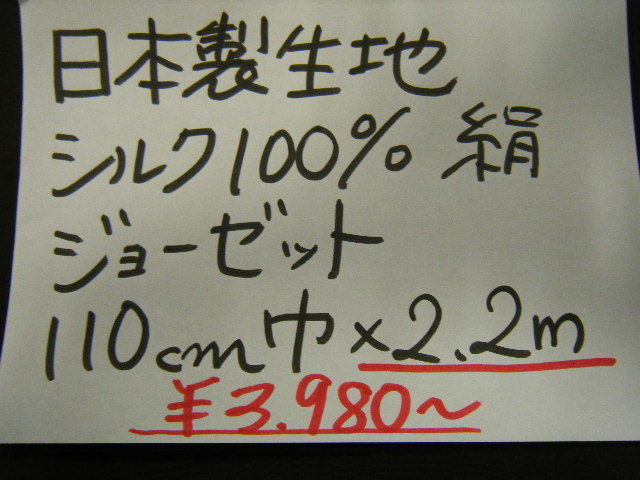 日本製生地
シルク100% 絹
ジョーゼット
110cm巾×2.2m
¥3.980～